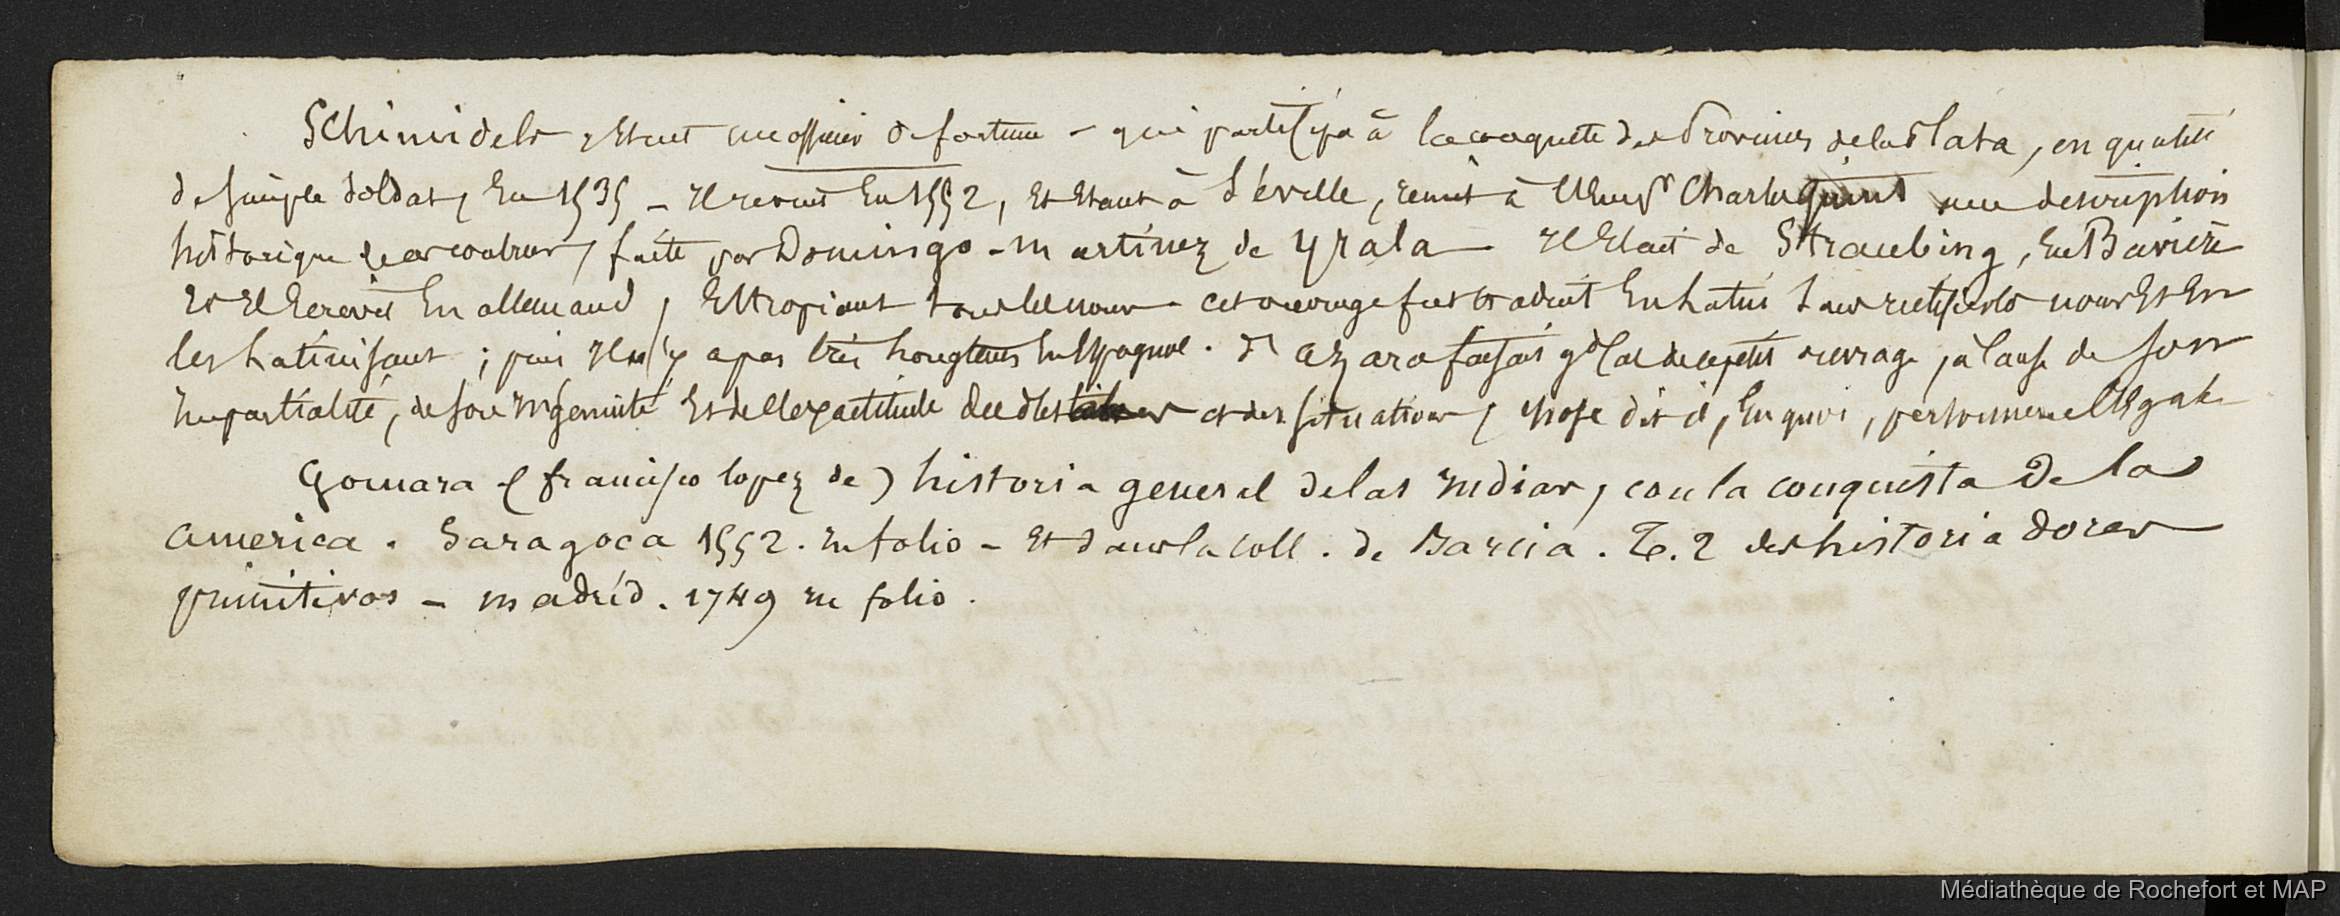 Schimidels, Etait un officier de fortune - qui participa à la conquete des Provinces de la Plata, en qualité
de simple soldat, En 1535 - Il revint En 1552, et Etant à Séville, remit à l'Emp.r Charlequint une description
historique de ces contrées, faite par Domingo - martinez de yrala - Il Etait de Straubing, En Baviere
Et Il Ecrivit En allemand, Estropiant tous les noms - cet ouvrage fut traduit En Latin sans rectifier les noms Et En
les Latinisant ; puis Il n'y a pas très longtems En Espagnol. D'azara faisait g.d Cas de ce petit ouvrage, à Cause de son
Impartialité, de son Ingenuité Et de l'Exactitude des distances et des situations, chose dit il, En quoi, personne ne l'Egale
Gomara (francisco lopez de) historia general de las Indias, con la conquista de la
america. Saragoca 1552. In folio - Et dans la Coll. de Barcia. T. 2 des historiadores
primitivos - madrid. 1749 in folio.
Médiathèque de Rochefort et MAP